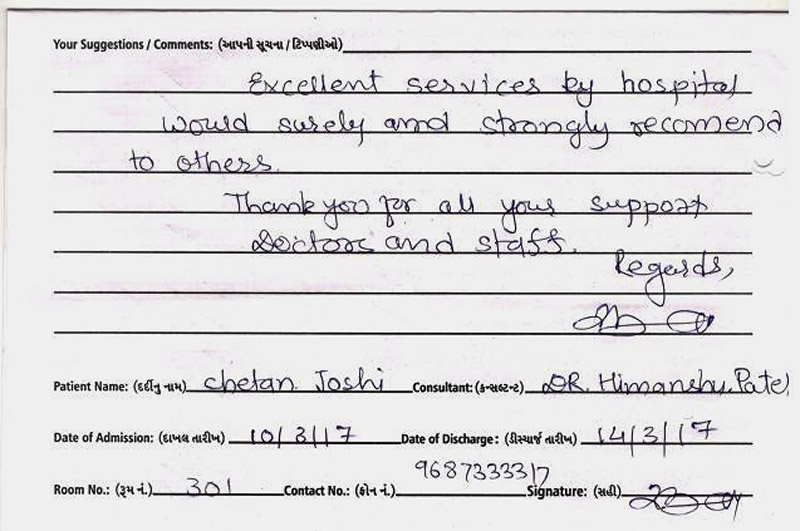 Your Suggestions / Comments: (આપની સૂચના / ટિપ્પણીઓ)
Excellent services by hospital
would surely and strongly recomend
to others.
Thank you for all your support
Doctors and staff.
Regards,
Patient Name: (દર્દીનું નામ) Chetan Joshi Consultant: (કન્સલ્ટન્ટ) DR. Himanshu Patel
Date of Admission: (દાખલ તારીખ) 10/3/17 Date of Discharge: (ડીસ્ચાર્જ તારીખ) 14/3/17
Room No.: (રૂમ નં.) 301 Contact No.: (ફોન નં.) 9687333317 Signature: (સહી)